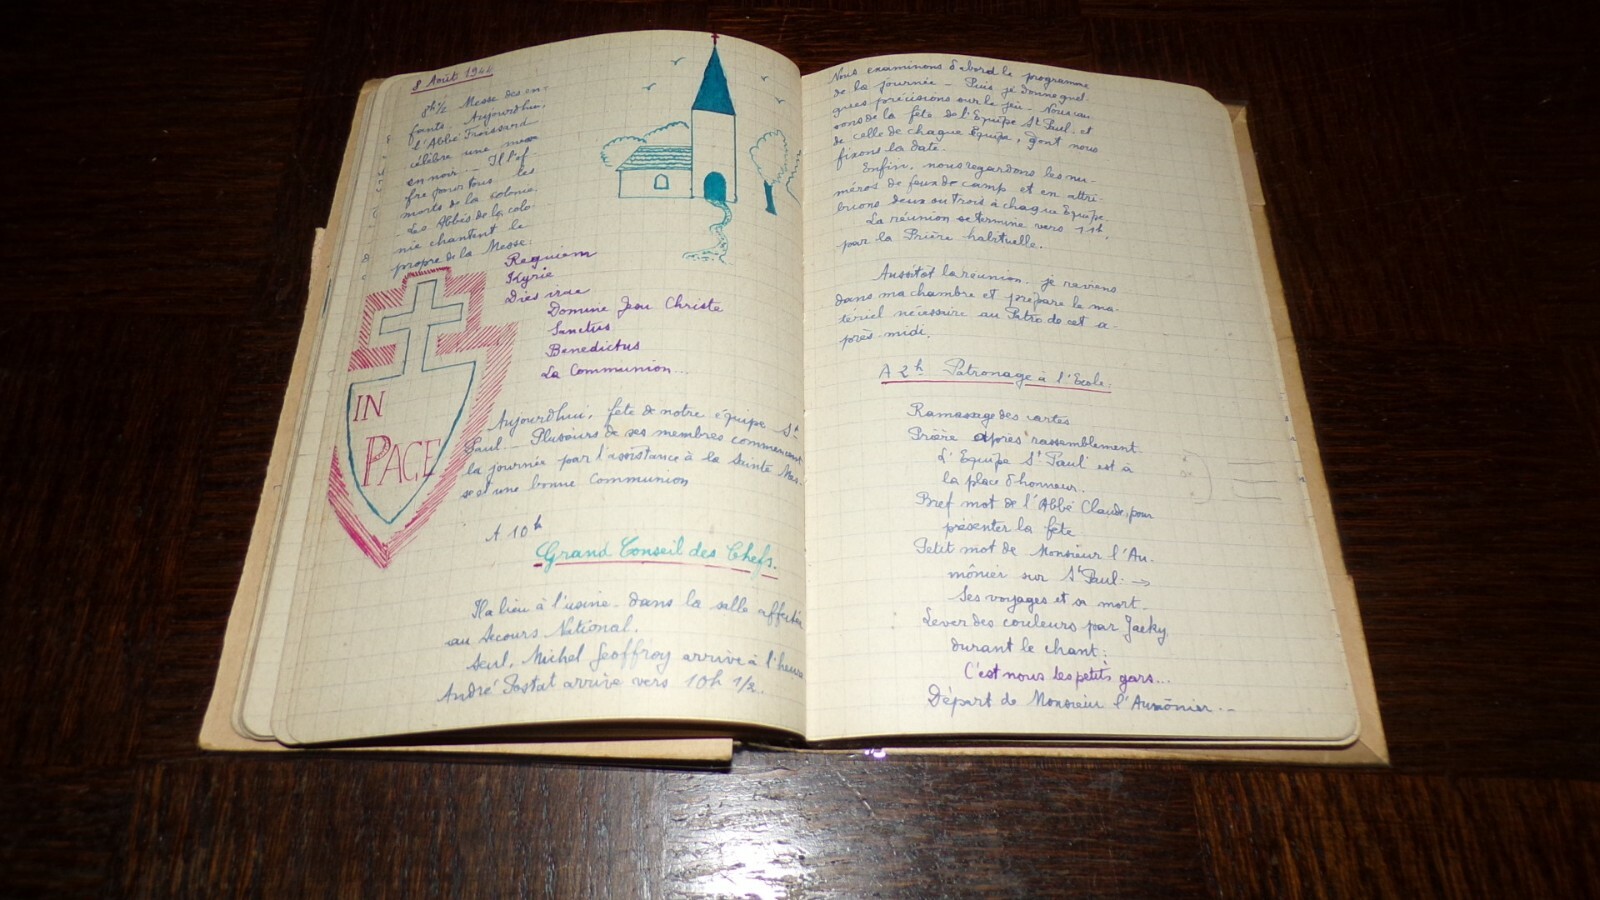 8 Août 194
8h ½ Messe des en-
fants. Aujourdhui,
l'Abbé Froissard
célèbre une messe
en noir... Il l'of
fre pour tous les
morts de la colonie.
Les Abbés de la colo-
nie chantent le
propre de la Messe:
Requiem
Kyrie
Dies irae
Domine Jesu Christe
Sanctus
Benedictus
La Communion...
IN
PACE
Aujourdhui, fête de notre équipe St
Paul. Plusieurs de ses membres commencent
la journée par l'assistance à la Sainte Mes-
se et une bonne Communion
A 10h
Grand Conseil des Chefs.
Il a lieu à l'usine dans la salle affectée
au Secours National.
Seul, Michel Geoffroy arrive à l'heure
André arrive vers 10h 1/2..
Nous examinons d'abord le programme
de la journée - Puis je donne quel-
ques précisions sur le jeu. Nous
de la fête de l'Equipe St Paul et
de celle de chaque Equipe, dont nous
fixons la date.
Enfin, nous regardons les nu-
méros de feux de camp et en attri-
buons deux ou trois à chaque Equipe.
La réunion se termine vers 11h.
par la Prière habituelle.
Aussitôt la réunion, je reviens
dans ma chambre et prépare le ma-
tériel nécessaire au Patro de cet a-
près midi.
A 2h Patronage à l'Ecole:
Ramassage des cartes
Prière après rassemblement.
L'Equipe St Paul est à
la place d'honneur.
Bref mot de l'Abbé Claude, pour
présenter la fête
Petit mot de Monsieur l'Au-
mônier sur St Paul: →
Ses voyages et sa mort.
Lever des couleurs par Jacky,
durant le chant:
C'est nous les petits gars...
Départ de Monsieur l'Aumônier...